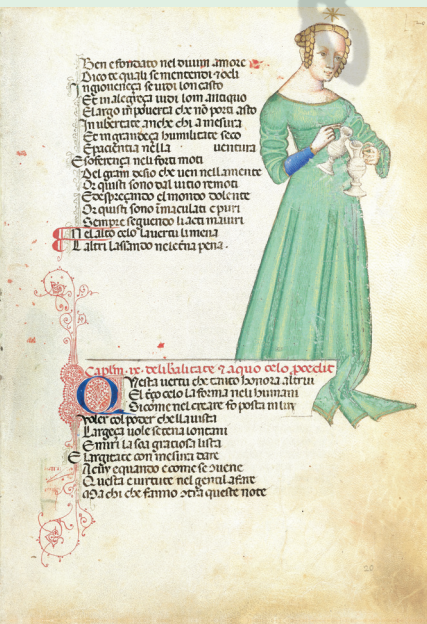 Ben e fondato nel divin amore
Dico te quali se mentendi ⁊ odi
In giovineça se vidi lon casto
Et in alegreça vidi lom antiquo
E largo in poverta che nō porti asto
In ubertate anche chi a mesura
Et in grandeça humilitate seco
E pacientia nella ventura
E sofferença neli forti moti
Del gram desio che ven nella mente
Or quisti sono dal vitio remoti
E despreçando el mondo dolente
Or quisti sono imaculati e puri
Sempre seguendo li acti maturi
Nel alto celo la vertu li mena
L altri lassando nel eterna pena.
de liberalitate ⁊ a quo celo
Questa vertu che tanto honora altrui
El celo la forma neli humani
Si come nel creare fo posta in lui
Voler col poder che la vista
Largeça vole serena lontani
E miri la soa gratiosa lista
E largitate con mesura dare
A cuy e quando e come se
Questa e virtute nel gentil afare
Ma chi che fanno queste note